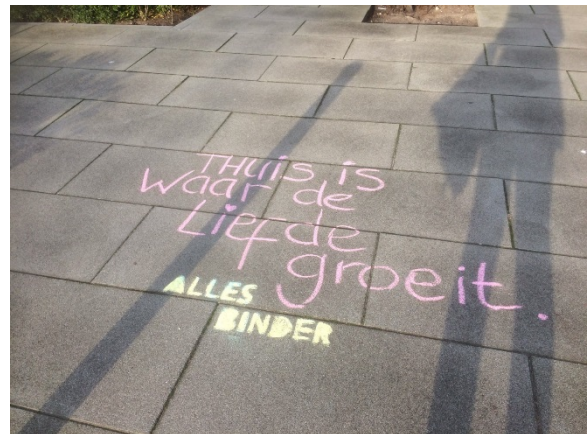 THuis is
waar de
Liefde
groeit.
ALLES
BINDER